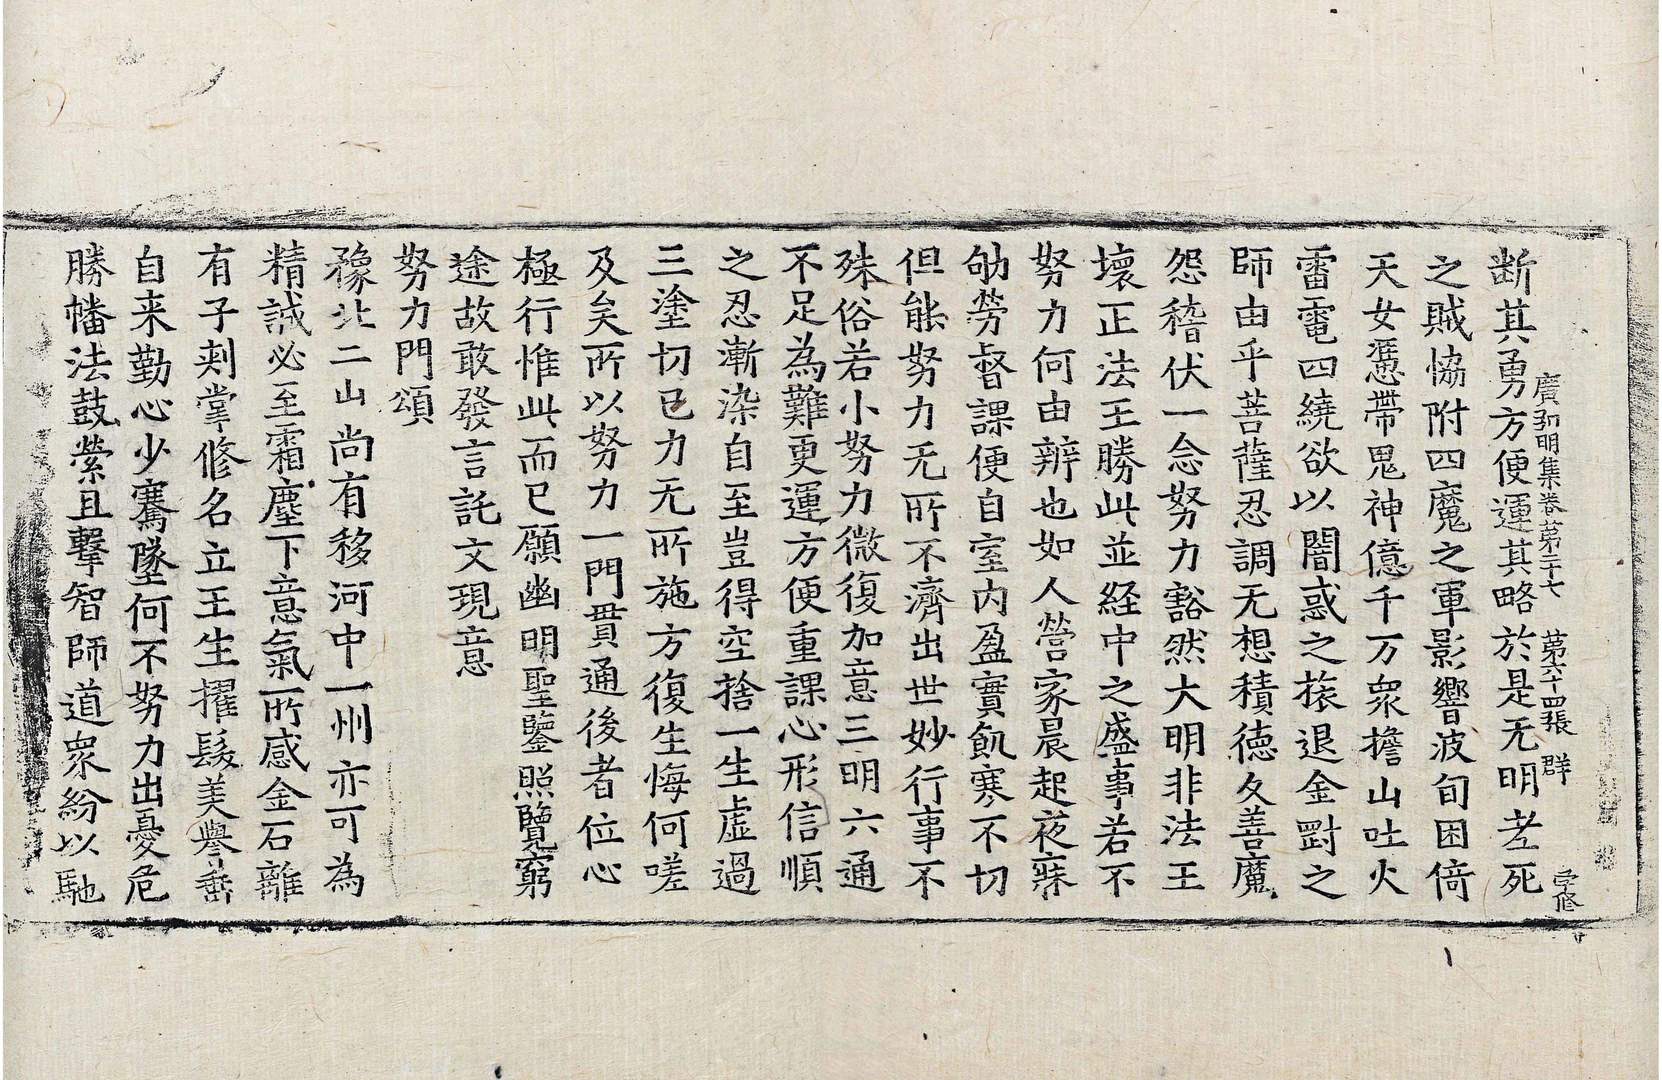 廣弘明集卷第二十七 第六十四張 群
断其勇方便運其略於是无明老死
之賊恊附四魔之軍影響波旬困倚
天女憑帶鬼神億千万衆擔山吐火
雷電四繞欲以闇惑之旅退金𠟃之
師由乎菩薩忍調无想積徳久善魔
怨稽伏一念努力豁然大明非法王
壊正法王勝此並経中之盛事若不
努力何由辨也如人營家晨起夜寐
劬勞督課便自室内盈實飢寒不切
但能努力无所不濟出世妙行事不
殊俗若小努力微復加意三明六通
不足為難更運方便重課心形信順
之忍漸染自至豈得空捨一生虚過
三塗切已力无所施方復生悔何嗟
及矣所以努力一門貫通後者位心
極行惟此而已願幽明聖鑒照覽窮
途故敢發言託文現意
努力門頌
豫北二山尚有移河中一州亦可為
精誠必至霜塵下意氣所感金石離
有子刾掌修名立王生擢髮美譽垂
自来勤心少騫墜何不努力出憂危
勝幡法鼓縈且擊智師道衆紛以馳